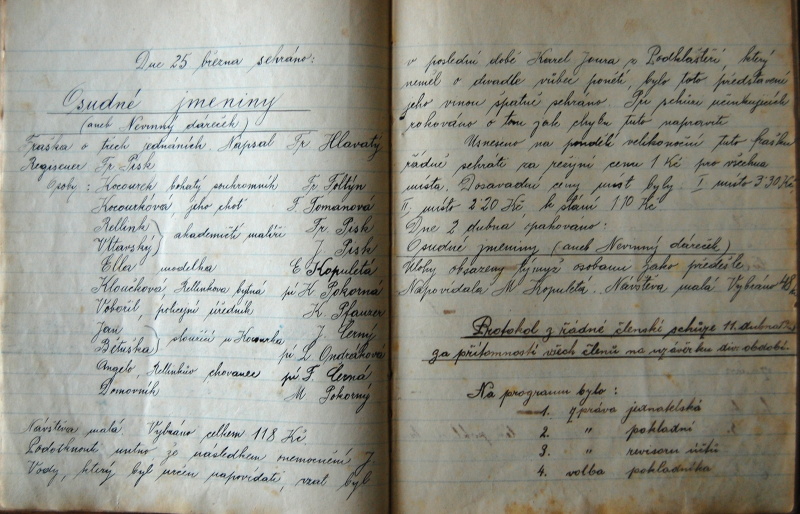 Dne 25 března sehráno:
Osudné jmeniny
(aneb Nevinný dáreček)
Fraška o třech jednáních. Napsal Fr Hlavatý
Regiseuer Fr Pisk
Osoby: Kocourek bohatý soukromník Fr Foltýn
Kocourková, jeho choť F. Tomanová
Rellink } akademičtí malíři Fr. Pisk
Vltavský } J. Pisk
Ella modelka E Kopuletá
Kloučková Rellinkova bytná pí K Pokorná
Vobořil, policejní úředník K. Pfauzer
Jan } sloužící u Kocourka J. Černý
Bětuška } pí L. Ondráková
Angelo Rellinkův chovanec pí F. Černá
Domovník M Pokorný
Návštěva malá Vybráno celkem 118 Kč.
Podotknouti nutno že následkem onemocnění J.
Vody, který byl určen napovídati, vzal byl
v poslední době Karel Joura z Podklášteří, který
neměl o divadle vůbec ponětí, bylo toto představení
jeho vinou špatně sehráno. Při schůzi účinkujících
rokováno o tom jak chybu tuto napraviti
Usneseno na pondělí velikonoční tuto frašku
řádně sehráti za režijní cenu 1 Kč pro všechna
místa. Dosavadní ceny míst byly. I místo 3·30 Kč,
II. místo 2·20 Kč, k stání 1·10 Kč
Dne 2 dubna opakováno:
Osudné jmeniny (aneb Nevinný dáreček)
Úlohy obsazeny týmiž osobami jako předešle.
Napovídala M Kopuletá. Návštěva malá Vybráno 48
Protokol z řádné členské schůze 11. dubna
za přítomnosti všech členů na uzávěrku div. období.
Na programu bylo:
1. zpráva jednatelská
2. " pokladní
3. " revisorů účtů
4. volba pokladníka